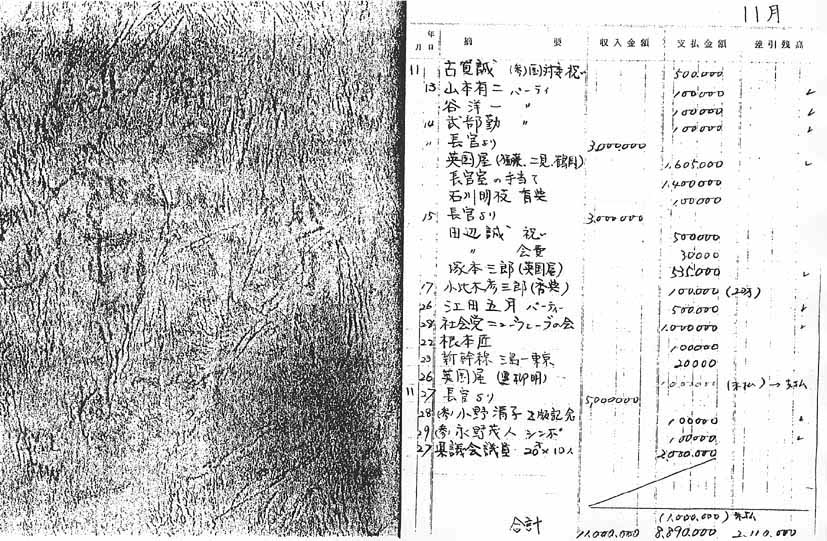 11月
年 月 日 摘 要 収入金額 支払金額 差引残高
11 古賀誠 (参)国対 祝い 500.000
13 山本有二 パーティ 100.000 ✓
谷洋一 〃 100.000 ✓
14 武部勤 〃 100.000 ✓
〃 長官より 3,000,000
英国屋 ( 、二見、鶴岡) 1.605.000 ✓
長官室の手当て 1.400.000
石川明役 100.000
15 長官より 3,000,000
田辺誠 祝い 500000
〃 会費 30000
塚本三郎(英国屋) 535.000 ✓
17 三郎 100.000 (20万)
26 江田五月 パーティー 500.000 ✓
28 社会党ニューウェーブの会 1.000.000 ✓
22 根本匠 100000
23 新幹線 三島ー東京 20000
26 英国屋 ( ) (未払) → 未払
11 27 長官より 5,000,000
28 (参)小野清子 出版記念 100000 ✓
29 (参)永野茂人 シンポ 100.000 ✓
27 県議会議員 20万×10人 2,000.000
(1.000.000) 未払
合計 11.000.000 8.890.000 2.110.000